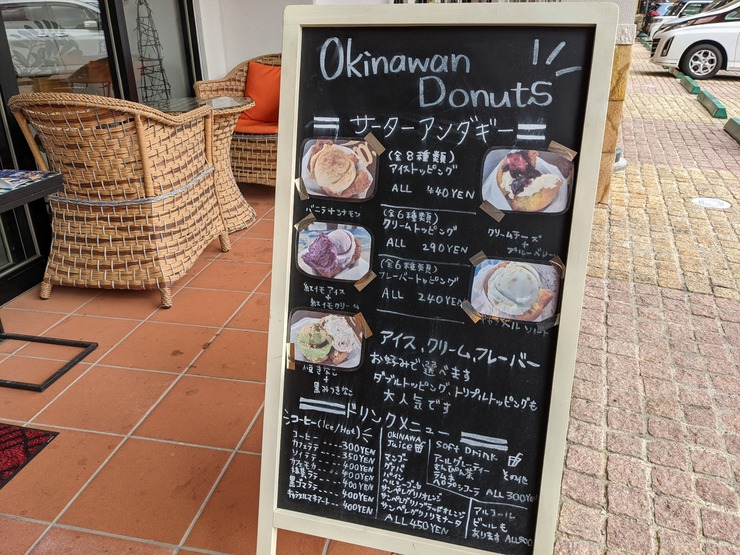 Okinawan
Donuts
サーターアンダギー
(全8種類)
アイストッピング
ALL 440YEN
バニラ+シナモン
(全6種類)
クリームトッピング
ALL 290YEN
クリームチーズ
+
ブルーベリー
(全6種類)
フレーバートッピング
ALL 240YEN
紅イモアイス
+
紅イモクリーム
アイス,クリーム,フレーバー
お好みで選べます
ダブルトッピング,トリプルトッピングも
大人気です
+
ドリンクメニュー
コーヒー(Ice/Hot)
コーヒー 300YEN
カフェラテ 350YEN
ソイラテ 400YEN
カフェモカ 400YEN
抹茶ラテ 400YEN
黒ゴマラテ 400YEN
400YEN
OKINAWA
Juice
マンゴー
グァバ
パイン
サンペレグリノオレンジ
サンペレグリノブラッドオレンジ
サンペレグリノリモナータ
ALL 450YEN
Soft Drink
アールグレーティー
さんぴん茶
その他
ALL 300YEN
アルコール
ビールも
あります ALL500